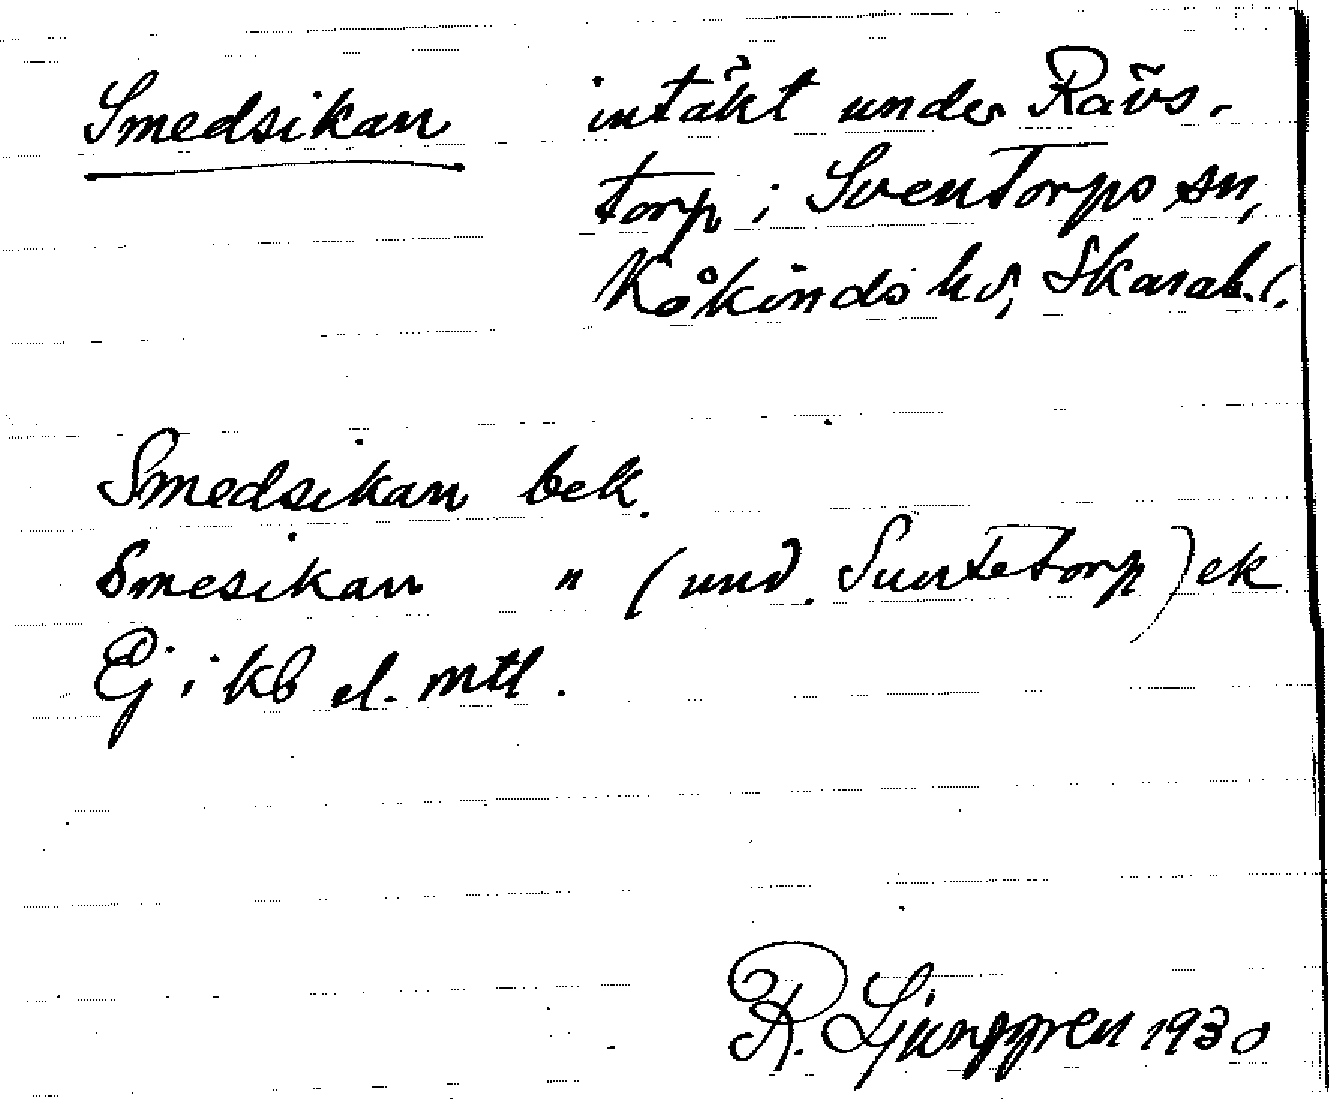 Smedsikan intäkt under Rävs-
torp i Sventorps sn,
Kåkinds hd, Skarab. l.
Smedsikan bek.
Smesikan " (und. Suntetorp) ek
Ej i kb el. mtl.
R. Ljunggren 1930